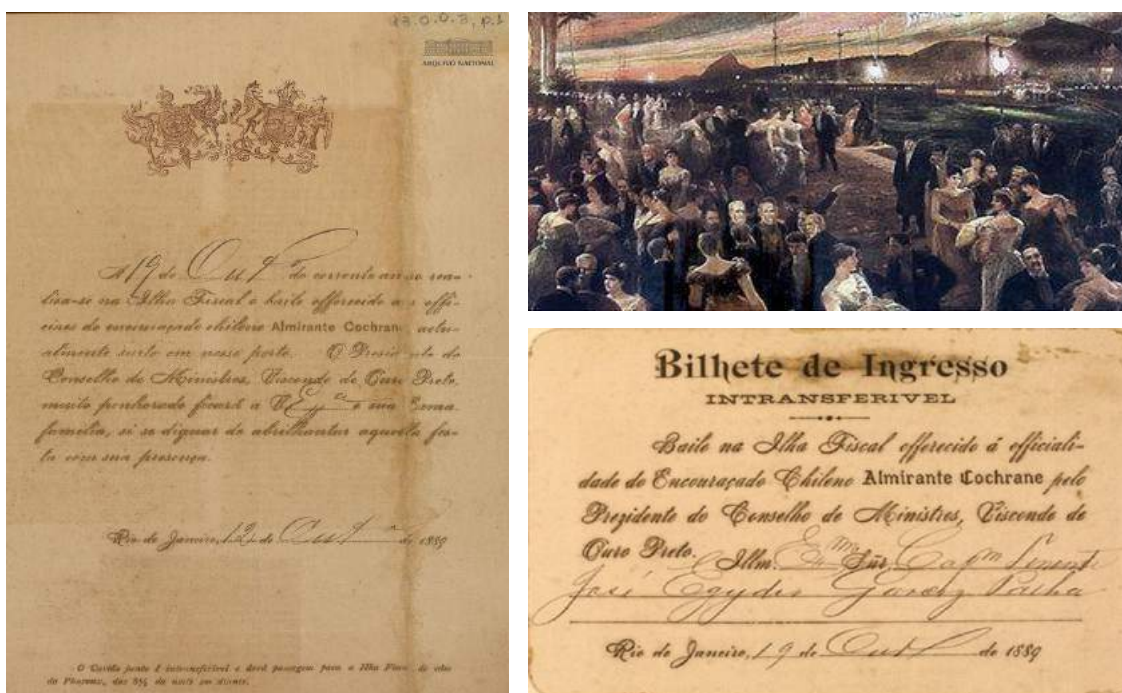 13.0.0.3, p.1
ARQUIVO NACIONAL
A 19 de Out.º do corrente anno rea-
lisa-se na Ilha Fiscal o baile offerecido aos offi-
ciaes do encouraçado chileno Almirante Cochrane, actu-
almente surto em nosso porto. O Presidente do
Conselho de Ministros, Visconde de Ouro Preto,
muito penhorado ficará a V Exª e sua Exma
familia, si se dignar de abrilhantar aquella fes-
ta com sua presença.
Rio de Janeiro, 12 de Out.º de 1889
O Cartão junto é intransferivel e dará passagem para a Ilha Fiscal, do cáes
do Pharoux, das 8½ da noite em diante.
Bilhete de Ingresso
INTRANSFERIVEL
Baile na Ilha Fiscal offerecido á officiali-
dade do Encouraçado Chileno Almirante Cochrane pelo
Prezidente do Conselho de Ministros, Visconde de
Ouro Preto. Illm. Exmº Sñr. Capm Tenente
José Egydio Garcez Palha
Rio de Janeiro, 19 de Outº de 1889